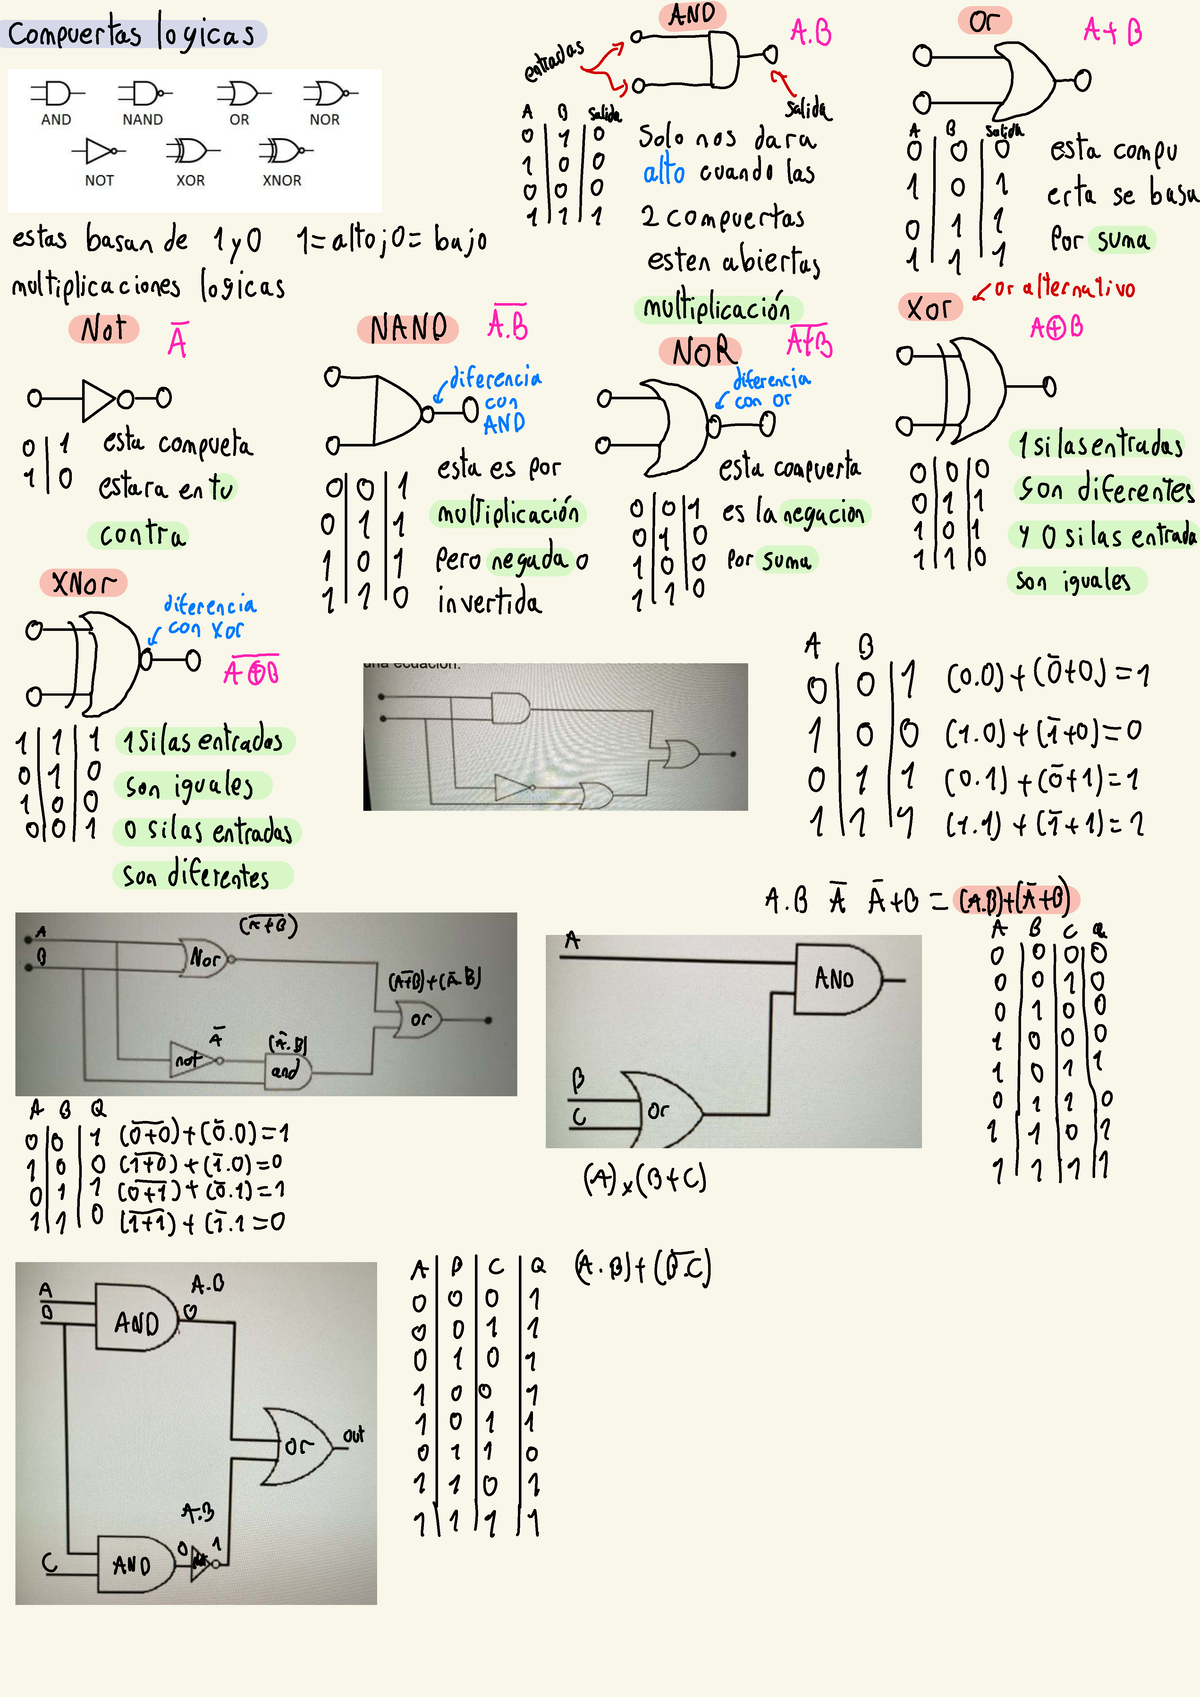 Compuertas logicas
AND NAND OR NOR
NOT XOR XNOR
estas basan de 1 y 0 1=alto j 0= bajo
multiplicaciones logicas
AND
A.B
entradas
salida
A B Salida
0 1 0
1 0 0
0 0 0
1 1 1
Solo nos dara
alto cuando las
2 compuertas
esten abiertas
multiplicación
Or
A+B
A B Salida
0 0 0
1 0 1
0 1 1
1 1 1
esta compu
erta se basa
Por suma
Not
A̅
0 1
1 0
esta compueta
estara en tu
contra
NAND
A.B̅
diferencia
con
AND
0 0 1
0 1 1
1 0 1
1 1 0
esta es por
multiplicación
Pero negada o
invertida
NOR
A+B̅
diferencia
con or
0 0 1
0 1 0
1 0 0
1 1 0
esta compuerta
es la negacion
Por suma
Xor
or alternativo
A⊕B
0 0 0
0 1 1
1 0 1
1 1 0
1 si las entradas
son diferentes
y 0 si las entrada
son iguales
XNor
diferencia
con xor
A⊕B̅
1 1 1
0 1 0
1 0 0
0 0 1
1 si las entradas
son iguales
0 si las entradas
son diferentes
una ecuación.
A B
0 0 1 (0.0)+(0̅+0)=1
1 0 0 (1.0)+(1̅+0)=0
0 1 1 (0.1)+(0̅+1)=1
1 1 1 (1.1)+(1̅+1)=1
A.B A̅ A̅+B = (A.B)+(A̅+B)
A
B
Nor
(A̅+̅B̅)
not
A̅
(A̅.B)
and
(A̅+̅B̅)+(A̅.B)
or
A B Q
0 0 1 (0̅+̅0̅)+(0̅.0)=1
1 0 0 (1̅+̅0̅)+(1̅.0)=0
0 1 1 (0̅+̅1̅)+(0̅.1)=1
1 1 0 (1̅+̅1̅)+(1̅.1=0
A
AND
B
C
or
(A)x(B+C)
A B C Q
0 0 0 0
0 0 1 0
0 1 0 0
1 0 0 0
1 0 1 1
0 1 1 0
1 1 0 1
1 1 1 1
A
B
AND
A.B
0
or
out
A.B
C
AND
0
1
A B C Q
0 0 0 1
0 0 1 1
0 1 0 1
1 0 0 1
1 0 1 1
0 1 1 0
1 1 0 1
1 1 1 1
(A.B)+(B̅.̅C̅)